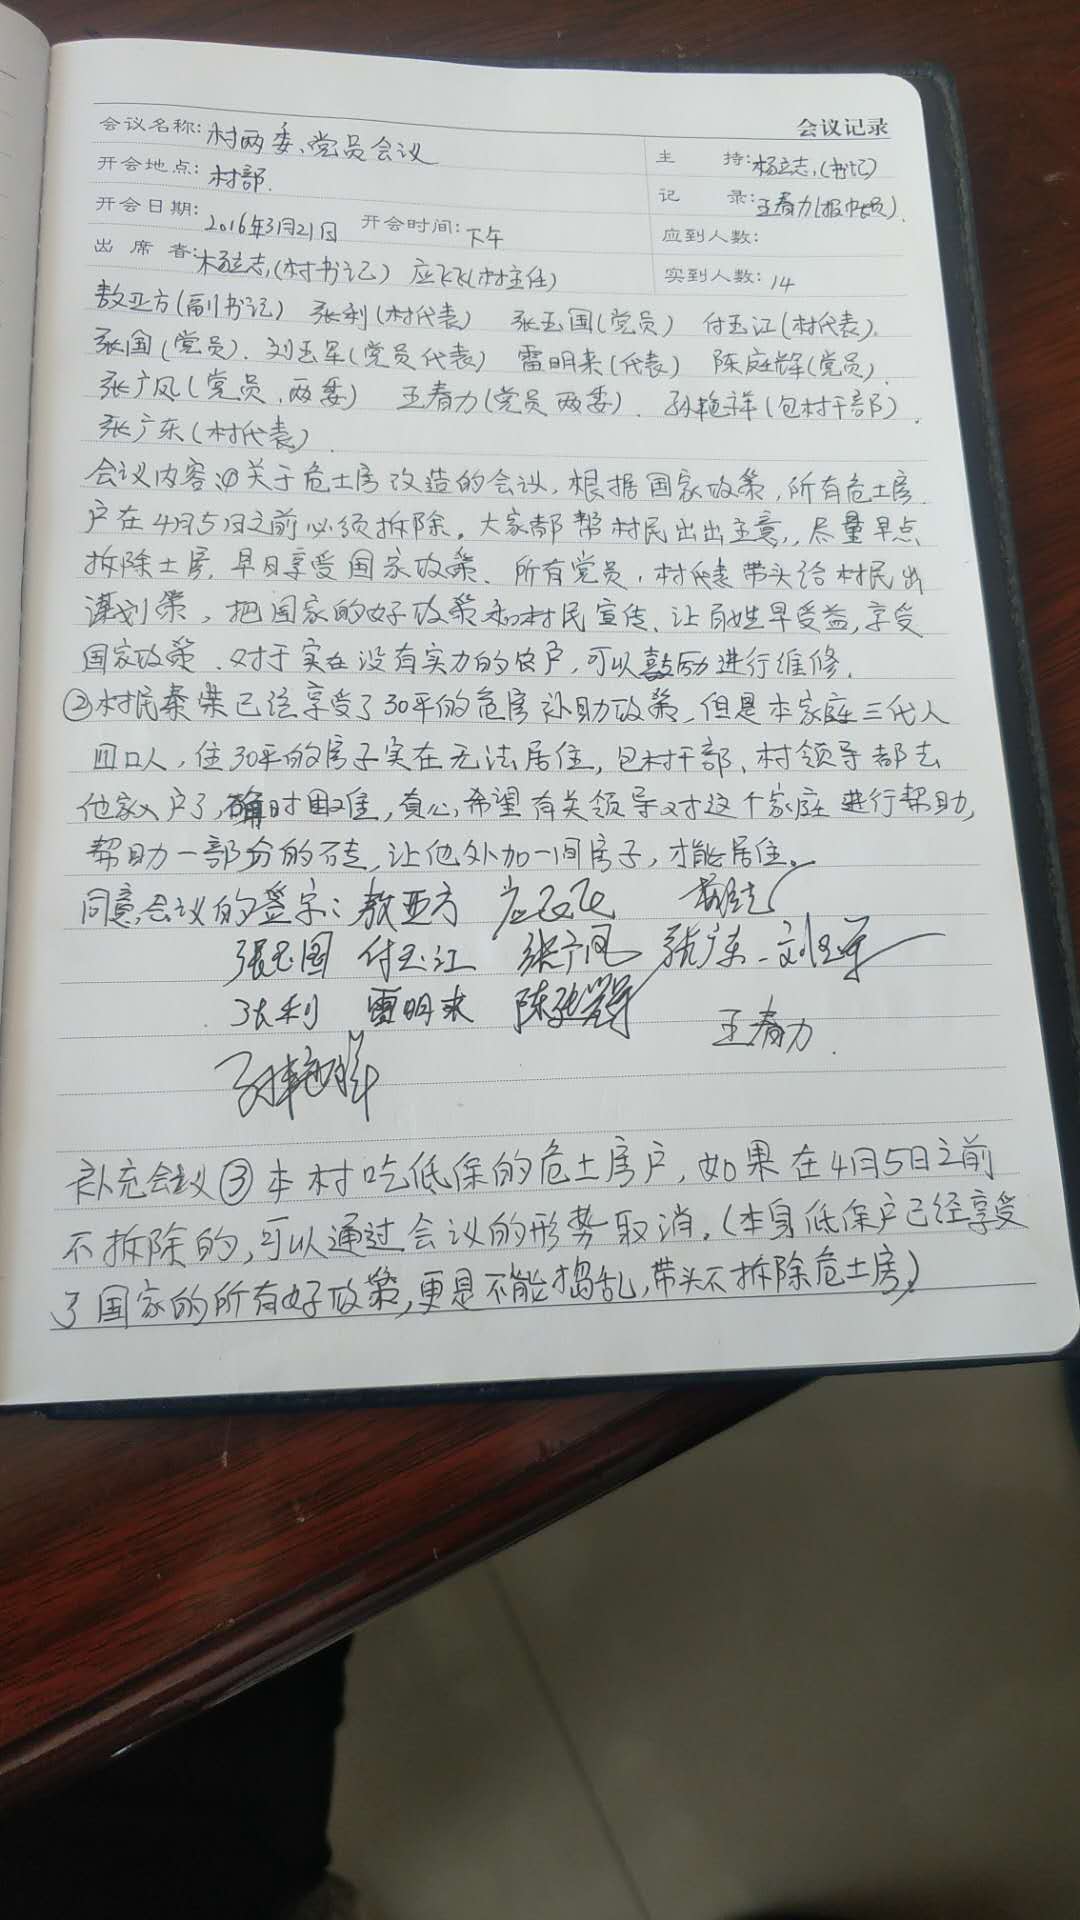 会议记录
会议名称:村两委、党员会议
主 持:杨立志,(书记)
开会地点:村部.
记 录:王春力(报中员).
开会日期:2016年3月21日 开会时间:下午
应到人数:
出席者:杨立志,(村书记) 应飞飞(村主任)
实到人数:14
敖亚方(副书记) 张利(村代表) 张玉国(党员) 付玉江(村代表).
张国(党员). 刘玉军(党员代表) 雷明来(代表) 陈庭辉(党员).
张广凤(党员,两委) 王春力(党员两委). 孙艳祥(包村干部).
张广东(村代表)
会议内容:①关于危土房改造的会议,根据国家政策,所有危土房
户在4月5日之前必须拆除。大家都帮村民出出主意,,尽量早点
拆除土房,早日享受国家政策、所有党员,村代表带头给村民出
谋划策,把国家的好政策和村民宣传、让百姓早受益,享受
国家政策.对于实在没有实力的农户,可以鼓励进行维修.
②村民秦荣已经享受了30平的危房补助政策,但是本家庭三代人
四口人,住30平的房子实在无法居住,包村干部、村领导都去
他家入户了,确时困难,真心希望有关领导对这个家庭进行帮助,
帮助一部分的石专,让他外加一间房子,才能居住。
同意会议的签字:敖亚方 应飞飞 杨立志
张玉国 付玉江 张广凤 张广东 刘玉军
张利 雷明来 陈庭辉 王春力.
孙艳祥
补充会议③本村吃低保的危土房户,如果在4月5日之前
不拆除的,可以通过会议的形势取消.(本身低保户已经享受
了国家的所有好政策,更是不能捣乱,带头不拆除危土房)